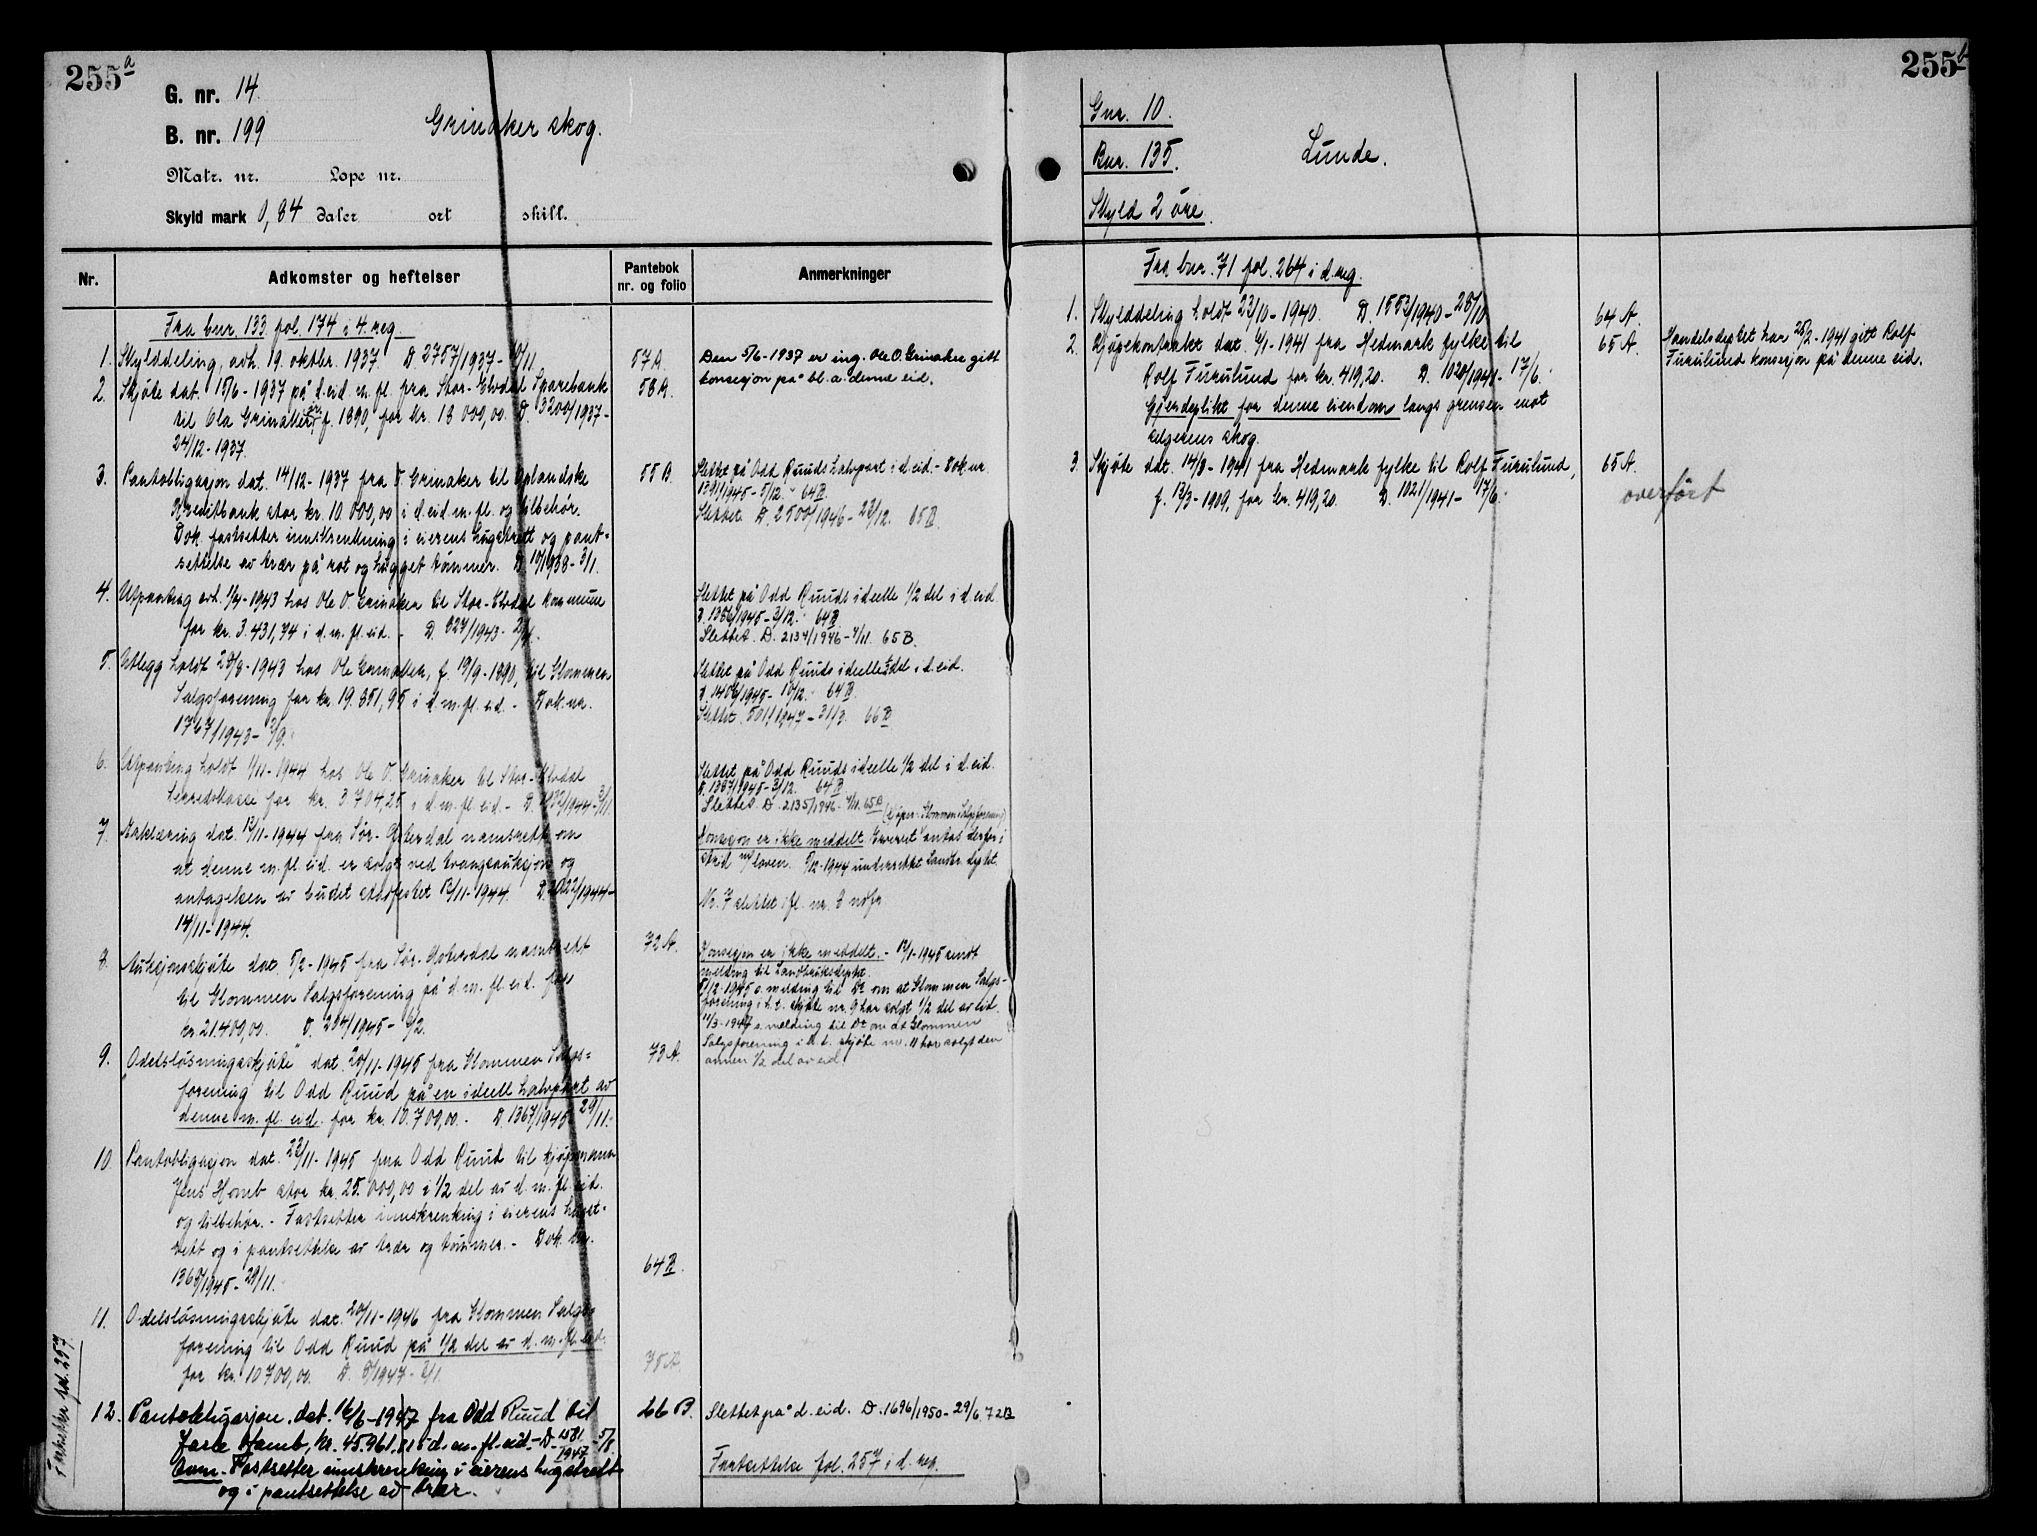 255a
G. nr. 14
B. nr. 199
Grinaker skog.
Matr. nr. Lope nr.
Skyld mark 0,84 daler ort skill.
Nr. Adkomster og heftelser Pantebok nr. og folio Anmerkninger
Fra bnr. 133 fol. 174 i 4. reg.
1. Skylddeling, avh. 19. oktbr. 1937. D 2757/1937 - /11 57A.
2. Skjøte dat. 15/6-1937 på d. eid. m. fl. fra Stor-Elvdal Sparebank 58A.
til Ola Grinaker, f. 1890, for kr. 18 000,00. D. 3200/1937-
24/12-1937.
Den 5/6-1937 er ing. Ole O. Grinaker gitt
konsesjon på bl. a. denne eid.
3. Pantobligasjon dat. 14/12-1937 fra O. Grinaker til Oplandske 55B.
Kreditbank stor kr. 10 000,00 i d. eid. m. fl. og tilbehør.
Dok. fastsetter innskrenkning i eierens hugstrett og pant-
settelse av trær på rot og hugget tømmer. D. 10/1938-3/1.
Slettet på Odd Ruuds halvpart i d. eid.- Dok. nr.
1391/1945-5/12. 64B.
Slettet. D. 2500/1946-23/12. 65B.
4. Utpanting avh. 1/4-1943 hos Ole O. Grinaker til Stor-Elvdal kommune
for kr. 3.431,74 i d. m. fl. eid. - D. 627/1943-
Slettet på Odd Ruuds ideelle 1/2 del i d. eid
D. 1386/1945-3/12. 64B.
Slettet. D. 2134/1946-4/11. 65B.
5. Utlegg holdt 28/8-1943 hos Ole Grinaker, f. 19/9-1890, til Glommen
Salgsforening for kr. 19.851,95 i d. m. fl. eid. - Dok. nr.
1767/1943-2/9.
Slettet på Odd Ruuds ideelle 1/2 del i d. eid.
D. 1406/1945-10/12. 64B.
Slettet. 501/1947-31/3. 66B
6. Utpanting holdt 1/11-1944 hos Ole O. Grinaker til Stor-Elvdal
herredskasse for kr. 3.704,25 i d. m. fl. eid. - D. /1944-3/11.
Slettet på Odd Ruuds ideelle 1/2 del i d. eid.
D. 1387/1945-3/12. 64B.
Slettet. D. 2135/1946-4/11. 65B
7. Erklæring dat. 13/11-1944 fra Sør-Østerdal namsrett om
at denne m. fl. eid. er solgt ved tvangsauksjon og
antagelsen av budet stadfestet 13/11-1944. D. 2022/1944-
14/11-1944.
(Kjøper: Glommen Salgsforening)
Konsesjon er ikke meddelt. Ervervet antas derfor i
strid m/ loven. /12-1944 underrettet Landbr. dept.
Nr. 7 slettet ifl. nr. 8 ndfr.
8. Auksjonsskjøte dat. 5/2-1945 fra Sør-Østerdal namsrett 72A.
til Glommen Salgsforening på d. m. fl. eid. for
kr. 21.400,00. D. 204/1945-6/2.
Konsesjon er ikke meddelt. - 13/1-1945 sendt
melding til Landbruksdept.
5/12-1945 s. melding til Do om at Glommen Salgs-
forening i h. t. skjøte nr. 9 har solgt 1/2 del av eid.
11/3-1947 s. melding til Do om at Glommen
Salgsforening i h. t. skjøte nr. 11 har solgt den
annen 1/2 del av eid.
9. "Odelsløsningsskjøte" dat. 20/11-1945 fra Glommen Salgs- 73A.
forening til Odd Ruud på en ideell halvpart av
denne m. fl. eid. for kr. 10.700,00. - D. 1367/1945-29/11.
10. Pantobligasjon dat. 23/11-1945 fra Odd Ruud til kjøpmann
Jens Homb stor kr. 25.000,00 i 1/2 del av d. m. fl. eid.
og tilbehør. - Fastsetter innskrenking i eierens hugst-
rett og i pantsettelse av trær og tømmer. - Dok. nr.
1368/1945-29/11. 64B.
11. Odelsløsningsskjøte dat. 20/11-1946 fra Glommen Salgs-
forening til Odd Ruud på 1/2 del av d. m. fl. eid.
for kr. 10700,00. D. 8/1947-2/1. 75A.
12. Pantobligasjon. dat. 16/6-1947 fra Odd Ruud til 66B.
Jarle Homb, kr. 45.961,81 i d. m. fl. eid. - D. 1581/1947-5/8.
Anm. Fastsetter innskrenking i eierens hugstrett
og i pantsettelse av trær.
Slettet på d. eid. D. 1696/1950-29/6. 72B
Fortsettelse fol. 257 i d. reg.
Fortsetter fol. 257.
255b
Gnr. 10.
Bnr. 135.
Lunde.
Skyld 2 øre.
Fra bnr. 71 fol. 264 i d. reg.
1. Skylddeling holdt 23/10-1940. D. 1553/1940-28/10. 64A.
2. Kjøpekontrakt dat. 6/1-1941 fra Hedmark fylke til 65A.
Rolf Furulund for kr. 419,20. D. 1020/1941-17/6.
Gjerdeplikt for denne eiendom langs grensen mot
selgerens skog.
Landbr.deptet har 25/2-1941 gitt Rolf
Furulund konsesjon på denne eid.
3. Skjøte dat. 14/3-1941 fra Hedmark fylke til Rolf Furulund, 65A.
f. 13/3-1909, for kr. 419,20. D. 1021/1941-17/6.
overført